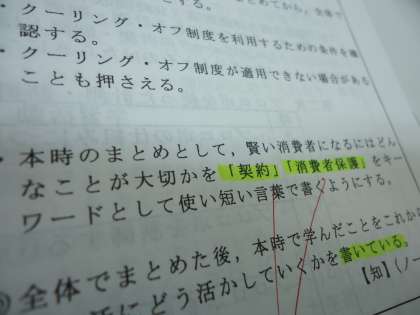 めてから、全体で
する。
・クーリング・オフ制度を利用するための条件を確
認する。
・クーリング・オフ制度が適用できない場合がある
ことも押さえる。
・本時のまとめとして，賢い消費者になるにはどん
なことが大切かを「契約」「消費者保護」をキー
ワードとして使い短い言葉で書くようにする。
全体でまとめた後，本時で学んだことをこれか
にどう活かしていくかを書いている。
【知】（ノー